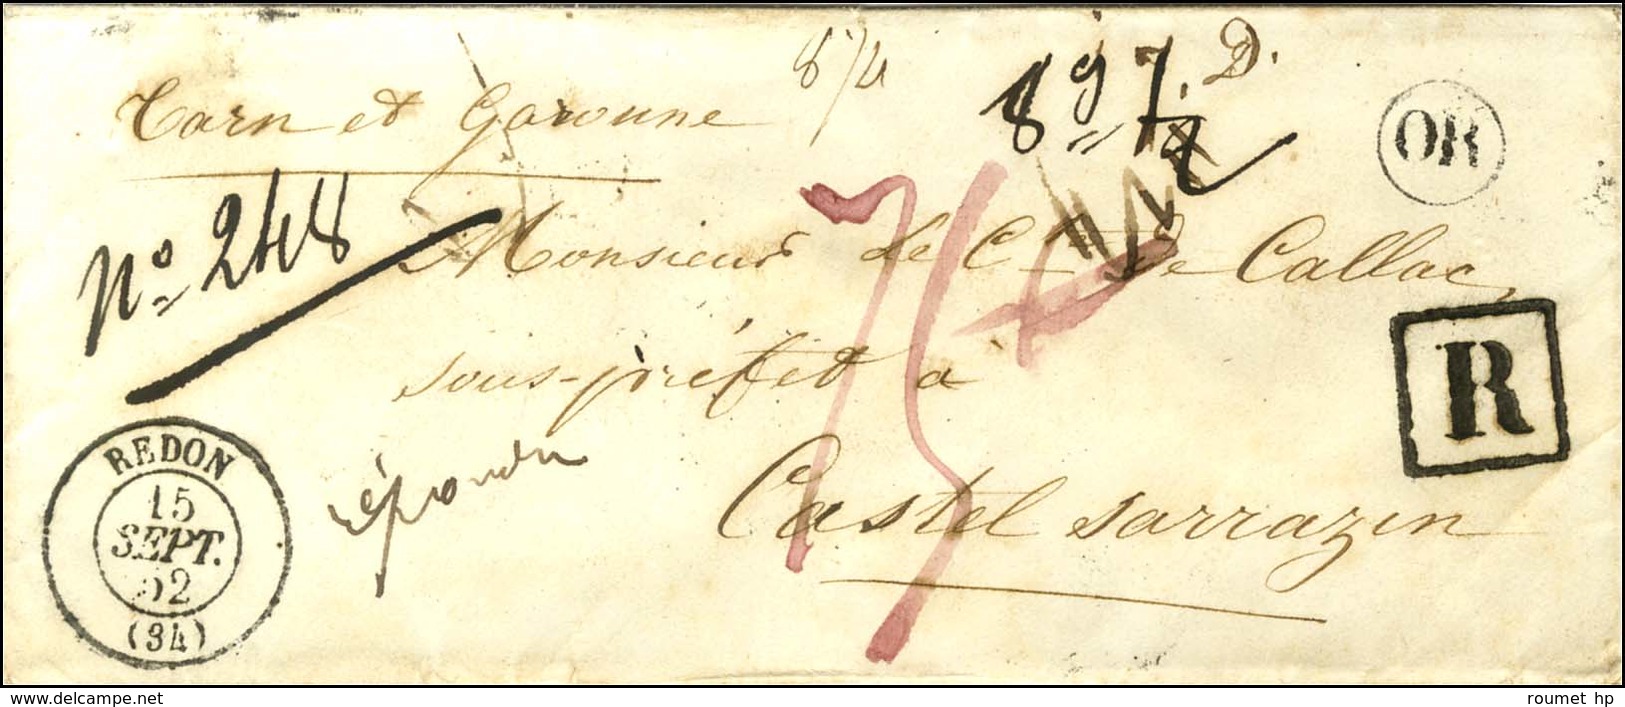 8/4
897. D.
Tarn et Garonne
OR
N° 248
Monsieur Le Cte de Callac,
sous-préfet à
R
75
REDON
15
SEPT.
52
(34)
répondu
Castel sarrazin
roumet hp